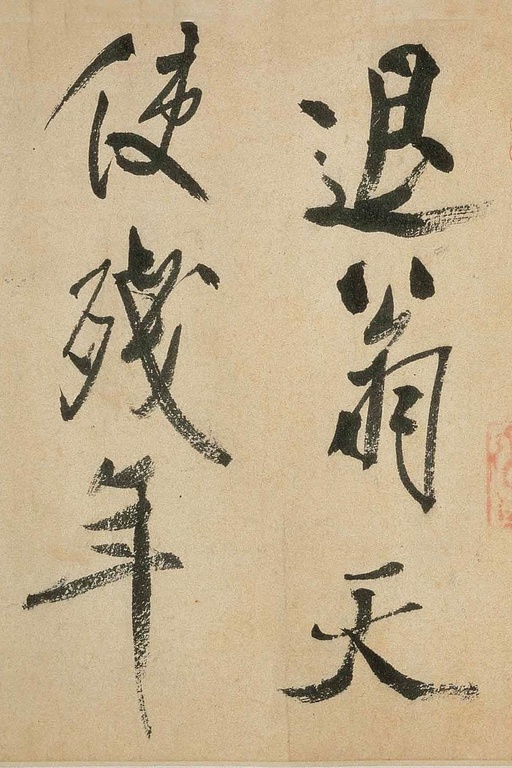 退翁天
使殘年